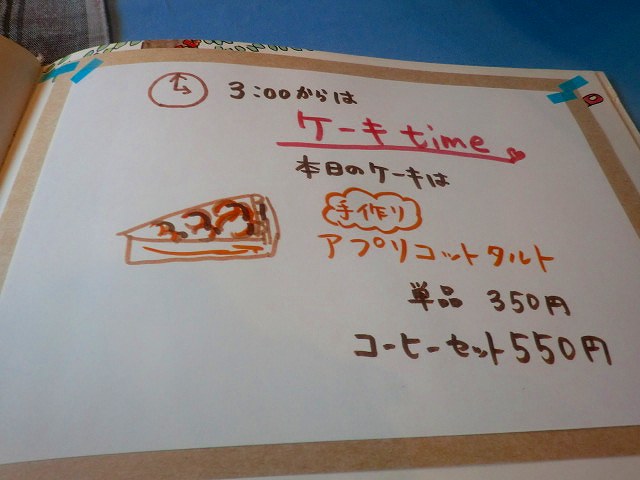 3:00からは
ケーキtime
本日のケーキは
手作り
アプリコットタルト
単品 350円
コーヒーセット550円